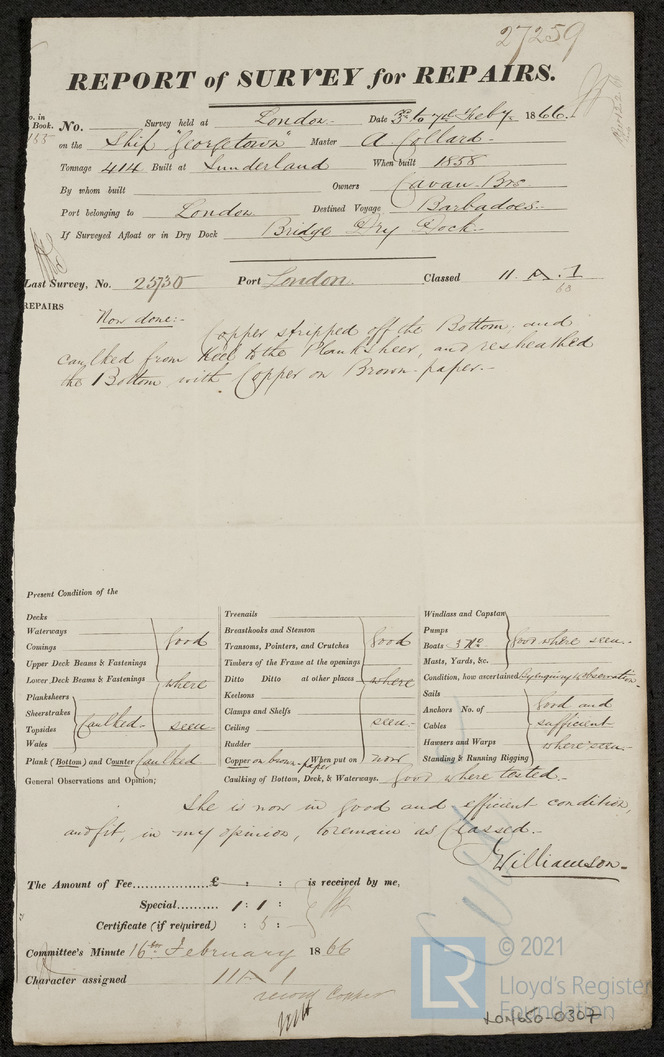 27259
REPORT of SURVEY for REPAIRS.
No. Survey held at London Date 3rd to 7th Feby. 1866.
on the Ship "Georgetown" Master A Collard
Tonnage 414 Built at Sunderland When built 1858
By whom built Owners Cavan Bros
Port belonging to London Destined Voyage Barbadoes
If Surveyed Afloat or in Dry Dock Bridge Dry Dock
Last Survey, No. 25730 Port London. Classed 11. A. 1
60
REPAIRS
Now done:- Copper stripped off the Bottom; and
caulked from Keel to the Planksheer, and resheathed
the Bottom with Copper on Brown paper.-
Present Condition of the
Decks
Waterways
Comings good
Upper Deck Beams & Fastenings
Lower Deck Beams & Fastenings where
Planksheers
Sheerstrakes
Topsides Caulked seen
Wales
Plank (Bottom) and Counter Caulked
Treenails
Breasthooks and Stemson
Transoms, Pointers, and Crutches good
Timbers of the Frame at the openings
Ditto Ditto at other places where
Keelsons
Clamps and Shelfs
Ceiling seen
Rudder
Copper on brown paper When put on now
Windlass and Capstan
Pumps
Boats 3 No. good where seen
Masts, Yards, &c.
Condition, how ascertained By enquiry & observation
Sails
Anchors No. of good and
Cables sufficient
Hawsers and Warps where seen
Standing & Running Rigging
General Observations and Opinion; Caulking of Bottom, Deck, & Waterways. good where tested
She is now in good and efficient condition,
and fit, in my opinion, to remain as Classed.
J Williamson
The Amount of Fee................£ : : is received by me,
Special......... 1 : 1 :
Certificate (if required) : 5 :
Committee's Minute 16th February 1866
Character assigned 11 A 1
© 2021
LR
Lloyd's Register
Foundation
LON650-0307